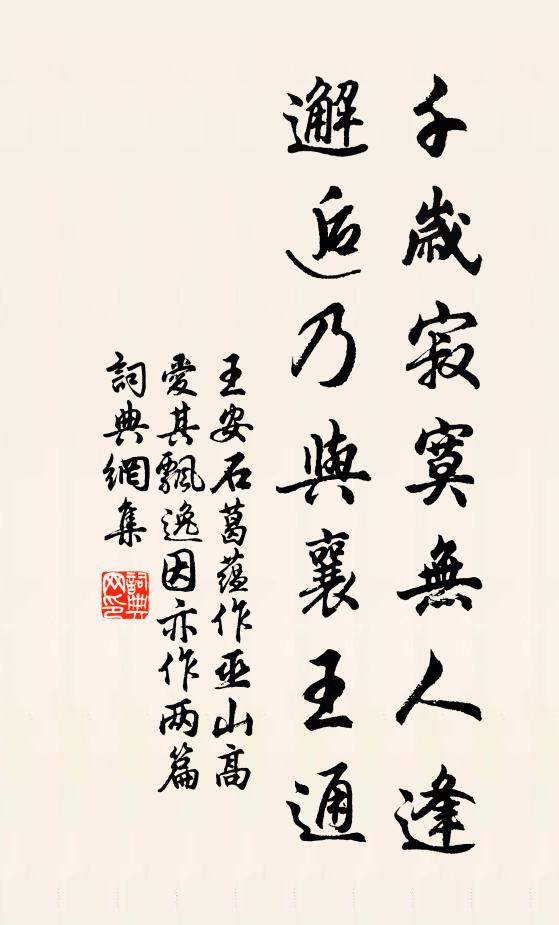 千歲寂寞無人逢
邂逅乃與襄王通
王安石葛蘊作巫山高
愛其飄逸因亦作兩篇
詞典網集
詞典网印